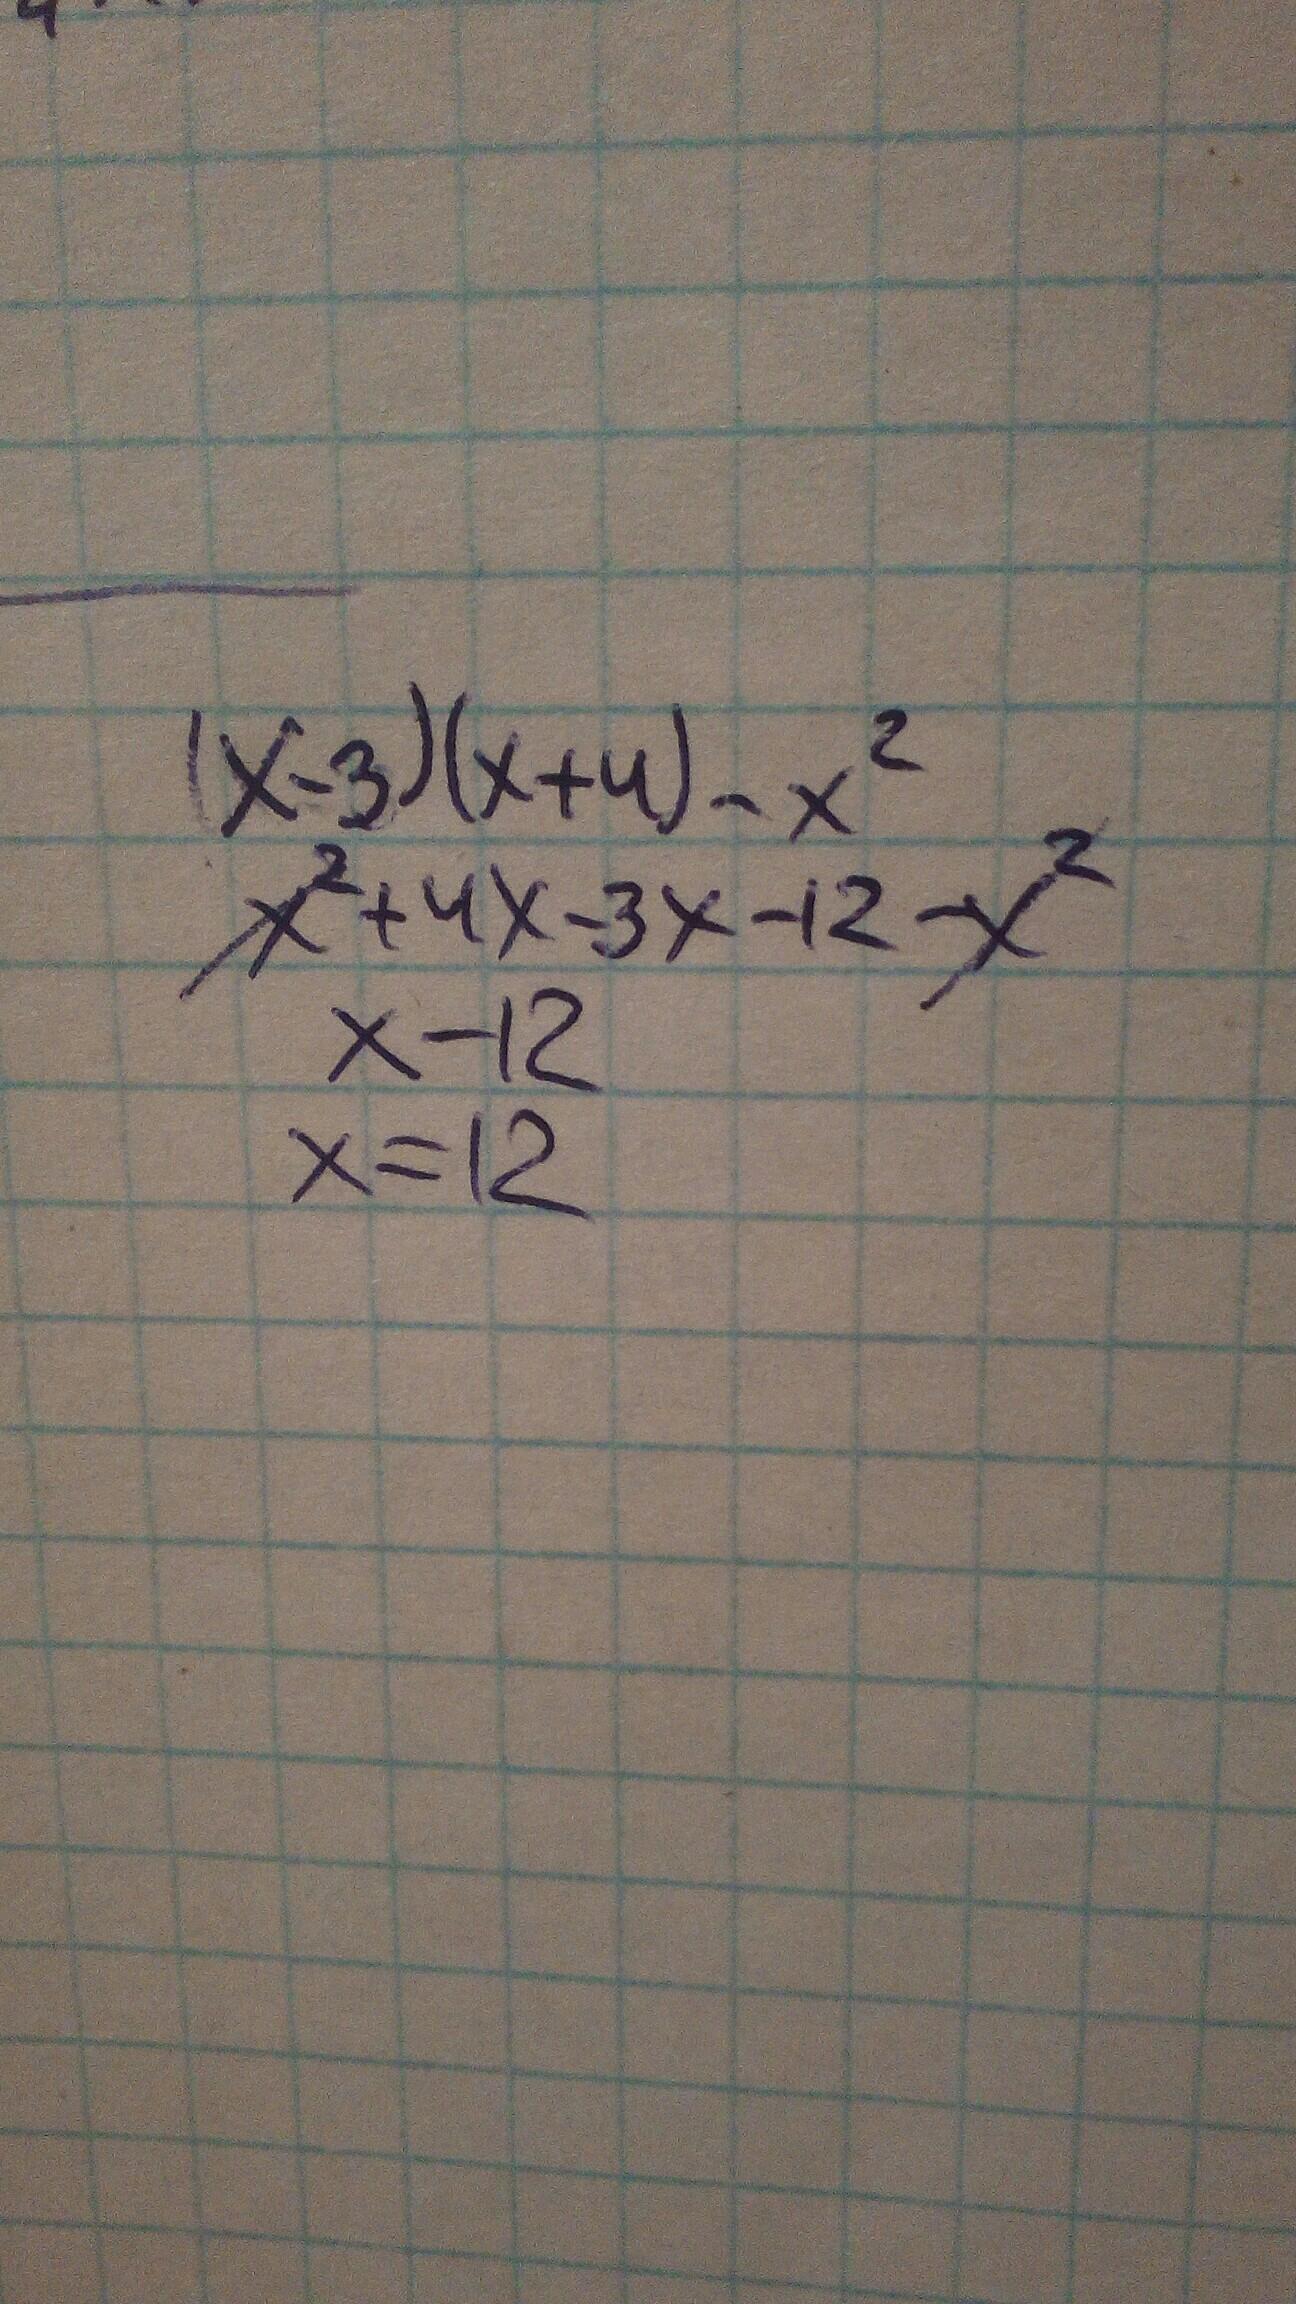 (x-3)(x+4)-x²
x²+4x-3x-12-x²
x-12
x=12